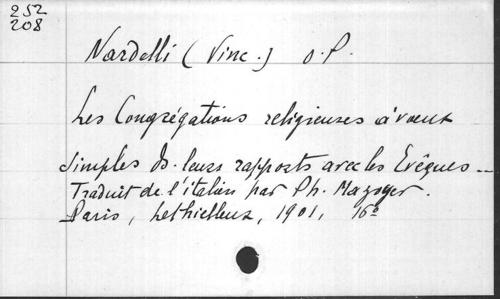 252
208
Nardelli (Vinc.) O.P.
Les Congrégations religieuses à voeux
simples ds. leurs rapports avec les Evêques –
Traduit de l'italien par Ph. Mazoyer.
Paris, Lethielleux, 1901, 16º